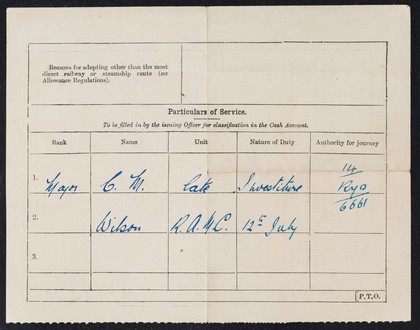 Reasons for adopting other than the most
direct railway or steamship route (see
Allowance Regulations).
Particulars of Service.
To be filled in by the issuing Officer for classification in the Cash Account.
Rank Name Unit Nature of Duty Authority for journey
14
1. Major C. M. late Investiture Ryo
6661
2. Wilson R.A.M.C. 12th July
3.
P.T.O.